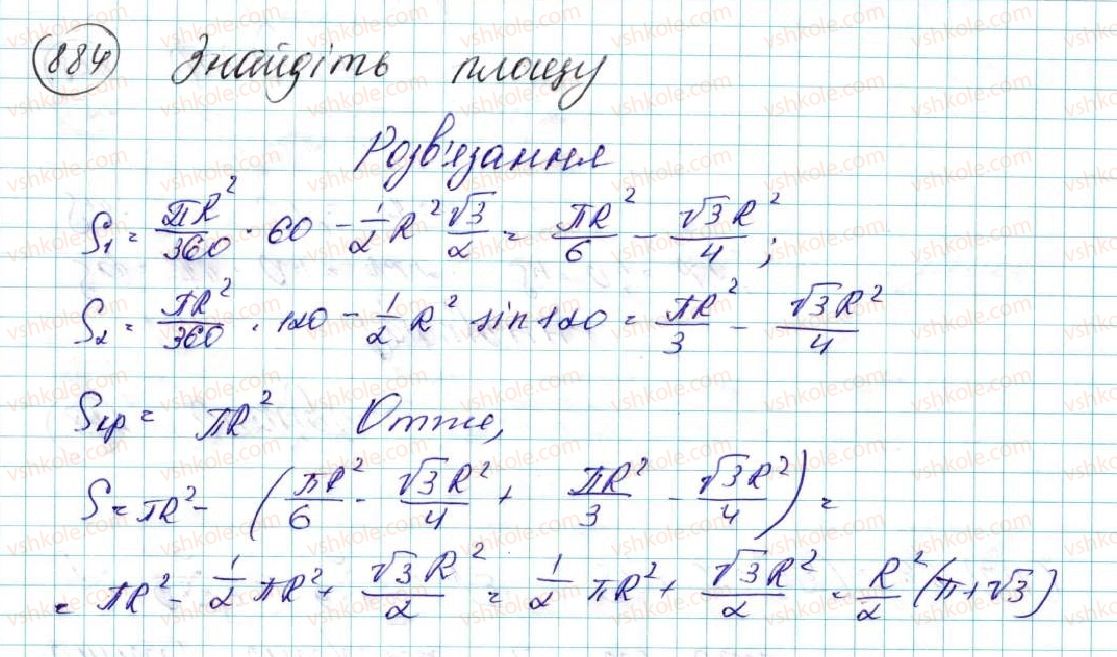 884 Знайдіть площу
Розв'язання
S₁ = πR²/360 · 60 − 1/2 R² √3/2 = πR²/6 − √3R²/4 ;
S₂ = πR²/360 · 120 − 1/2 R² sin 120 = πR²/3 − √3R²/4
Sкр = πR² Отже,
S = πR² − (πR²/6 − √3R²/4 + πR²/3 − √3R²/4) =
= πR² − 1/2 πR² + √3R²/2 = 1/2 πR² + √3R²/2 = R²/2 (π + √3)